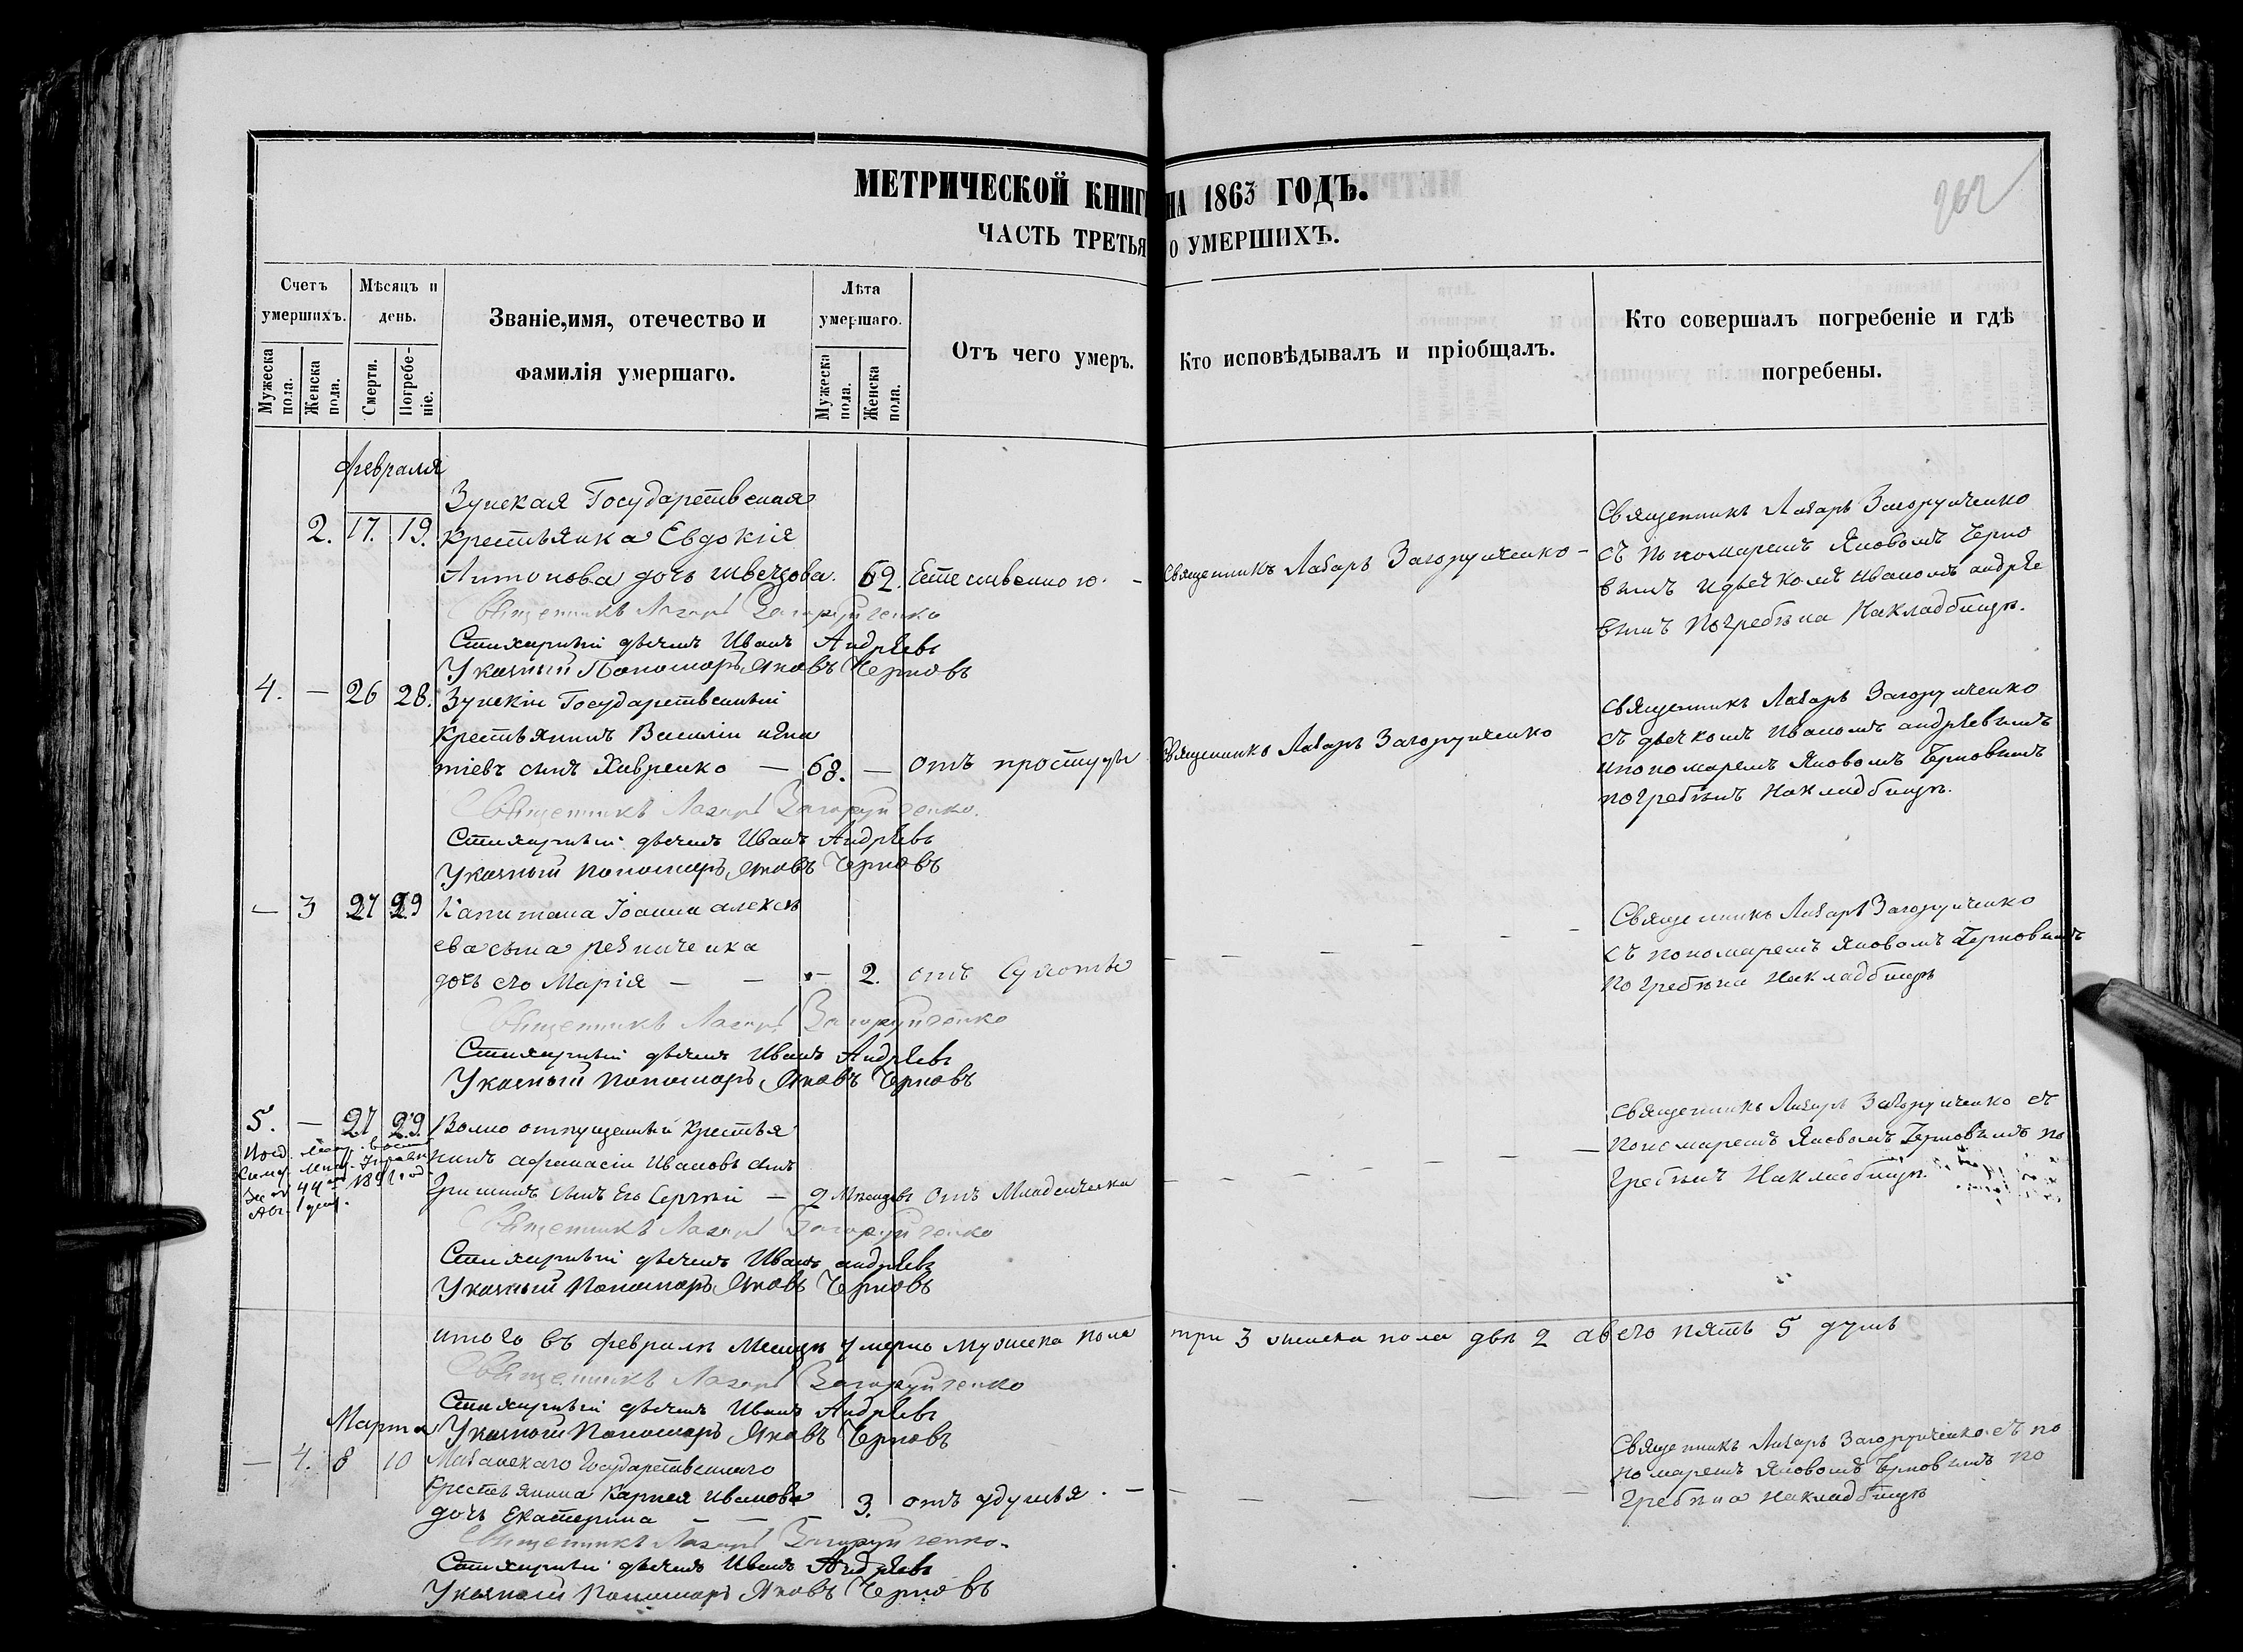 МЕТРИЧЕСКОЙ КНИГИ НА 1863 ГОДЪ.
262
ЧАСТЬ ТРЕТЬЯ О УМЕРШИХЪ.
Счетъ умершихъ.
Мѣсяцъ и день.
Званіе,имя, отечество и фамилія умершаго.
Лѣта умершаго.
Отъ чего умеръ.
Кто исповѣдывалъ и пріобщалъ.
Кто совершалъ погребеніе и гдѣ погребены.
Мужеска пола.
Женска пола.
Смерти.
Погребе-ніе.
Мужеска пола.
Женска пола.
Февраля
2. 17. 19.
Зунская Государственная
крестьянка Евдокія
Антонова дочь швецова. 62. Естественною. - Священникъ Лазарь Загоруйченко -
Священникъ Лазарь Загоруйченко
съ пономаремъ Яковомъ Черно
вымъ и дьячкомъ Иваномъ андрѣе
вымъ погребѣна на кладбищѣ.
Священникъ Лазарь Загоруйченко
Стихарный дьячекъ Иванъ Андрѣевъ
Указный Пономарь Яковъ Черновъ
4. — 26 28. Зунскій Государственный
крестьянинъ Василій
тіевъ сынъ Хивренко — 68. — отъ простуды Священникъ Лазарь Загоруйченко
Священникъ Лазарь Загоруйченко
съ дьячкомъ Иваномъ андрѣевымъ
и пономаремъ Яковомъ Черновымъ
погребѣнъ на кладбищѣ.
Священникъ Лазарь Загоруйченко.
Стихарный дьячекъ Иванъ Андрѣевъ
Указный пономарь Яковъ Черновъ
— 3 27 29 Капитана Іоанна алексѣ
ева сына резниченка
дочь его Марія — — — 2. отъ Сухоты
Священникъ Лазарь Загоруйченко
съ пономаремъ Яковомъ Черновымъ
погребѣна на кладбищѣ
Священникъ Лазарь Загоруйченко
Стихарный дьячекъ Иванъ Андрѣевъ
Указный пономарь Яковъ Черновъ
5. — 27 29. Вольно отпущенный крестья
нинъ афанасій Ивановъ сынъ
Гришинъ сынъ Его Сергій — 2 Мѣсяцевъ отъ Младенческа
Священникъ Лазарь Загоруйченко съ
пономаремъ Яковомъ Черновымъ по
гребѣнъ на кладбищѣ.
Священникъ Лазарь Загоруйченко
Стихарный дьячекъ Иванъ андрѣевъ
Указный пономарь Яковъ Черновъ
итого въ февралѣ Месяцѣ умерло мужеска пола три 3 женска пола двѣ 2 а всего пять 5 душъ
Священникъ Лазарь Загоруйченко
Стихарный дьячекъ Иванъ Андрѣевъ
Указный пономарь Яковъ Черновъ
Марта
— 4. 8 10
Государственнаго
крестьянина Карпея Иванова
дочь Екатерина — — — 3. отъ удушья. —
Священникъ Лазарь Загоруйченко съ по
номаремъ Яковомъ Черновымъ по
гребѣна на кладбищѣ
Священникъ Лазарь Загоруйченко.
Стихарный дьячекъ Иванъ Андрѣевъ
Указный Пономарь Яковъ Черновъ